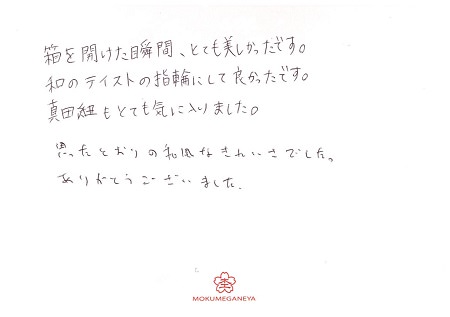 箱を開けた瞬間、とても美しかったです。
和のテイストの指輪にして良かったです。
真田紐もとても気に入りました。
思ったとおりの和風なきれいさでした。
ありがとうございました.
MOKUMEGANEYA